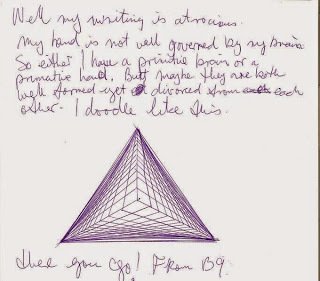 Well my writing is atrocious.
My hand is not well governed by my brain.
So either I have a primitive brain or a
primative hand. But maybe they are both
well formed yet divorced from each
other. I doodle like this.
Here you go! From B9.